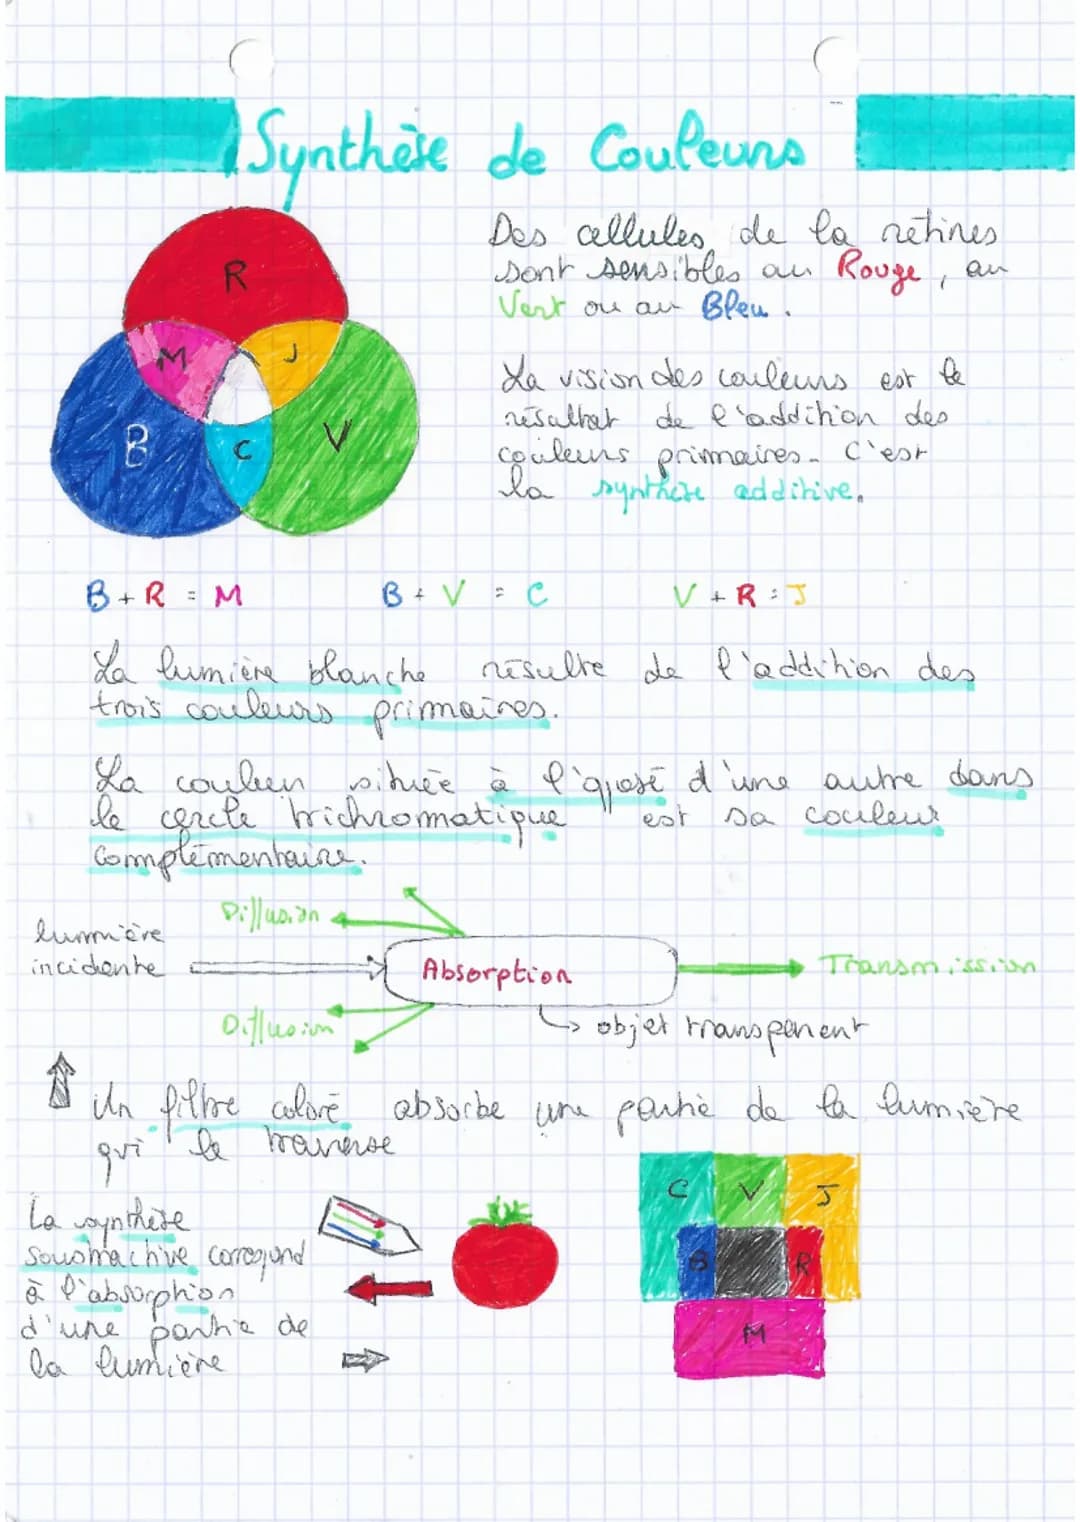 Synthèse de Couleurs
R
M
J
B
C
V
Des cellules de la rétines
sont sensibles au Rouge, au
Vert ou au Bleu.
La vision des couleurs est le
résultat de l'addition des
couleurs primaires. C'est
la synthèse additive.
B + R = M
B + V = C
V + R = J
La lumière blanche résulte de l'addition des
trois couleurs primaires.
La couleur située à l'opposé d'une autre dans
le cercle trichromatique est sa couleur
complémentaire.
Diffusion
lumière
incidente
Absorption
Transmission
Diffusion
objet transparent
Un filtre coloré absorbe une partie de la lumière
qui la traverse
La synthèse
soustractive correspond
à l'absorption
d'une partie de
la lumière
C
V
J
B
R
M